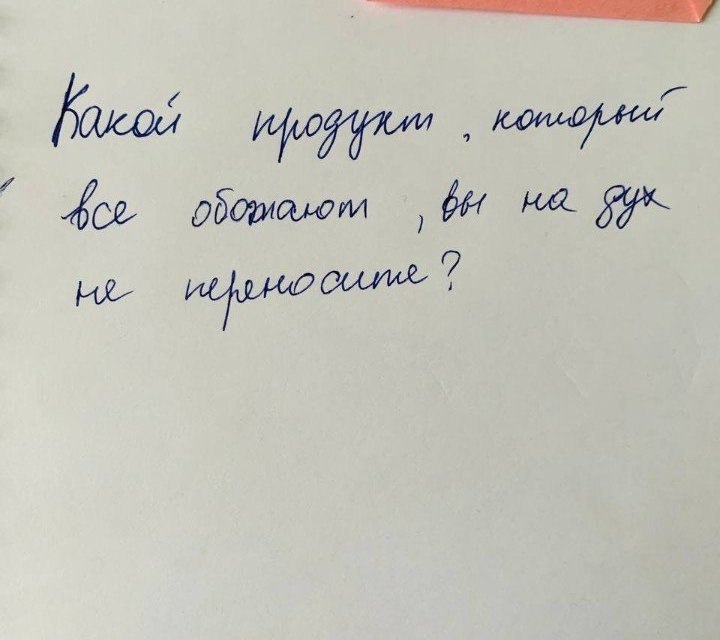 Какой продукт, который
все обожают, вы на дух
не переносите?